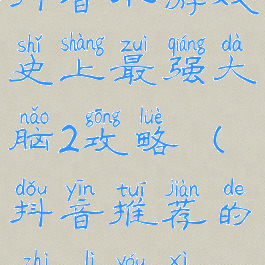 shǐ shàng zuì qiáng dà
史上最强大
nǎo gōng lüè
脑2攻略（
dǒu yīn tuī jiàn de
抖音推荐的
zhì lì yóu xì